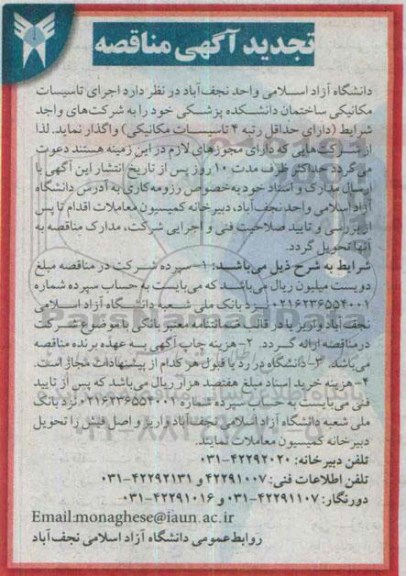 تجدید آگهی مناقصه
دانشگاه آزاد اسلامی واحد نجف‌آباد در نظر دارد اجرای تاسیسات
مکانیکی ساختمان دانشکده پزشکی خود را به شرکت‌های واجد
شرایط (دارای حداقل رتبه ۴ تاسیسات مکانیکی) واگذار نماید. لذا
از شرکت‌هایی که دارای مجوزهای لازم در این زمینه هستند دعوت
می‌گردد حداکثر ظرف مدت ۱۰ روز پس از تاریخ انتشار این آگهی با
ارسال مدارک و اسناد خود به‌خصوص رزومه کاری به آدرس دانشگاه
آزاد اسلامی واحد نجف‌آباد، دبیرخانه کمیسیون معاملات اقدام تا پس
از بررسی و تایید صلاحیت فنی و اجرایی شرکت، مدارک مناقصه به
آنها تحویل گردد.
شرایط به شرح ذیل می‌باشد: ۱- سپرده شرکت در مناقصه مبلغ
دویست میلیون ریال می‌باشد که می‌بایست به حساب سپرده شماره
۰۲۱۶۲۳۶۵۵۴۰۰۱ نزد بانک ملی شعبه دانشگاه آزاد اسلامی
نجف آباد واریز یا در قالب ضمانتنامه معتبر بانکی با موضوع شرکت
در مناقصه ارائه گردد. ۲- هزینه چاپ آگهی به عهده برنده مناقصه
می‌باشد. ۳- دانشگاه در رد یا قبول هر کدام از پیشنهادات مجاز است.
۴- هزینه خرید اسناد مبلغ هفتصد هزار ریال می‌باشد که پس از تایید
فنی می‌بایست به حساب سپرده شماره ۰۲۱۶۲۳۶۵۵۴۰۰۲ نزد بانک
ملی شعبه دانشگاه آزاد اسلامی نجف‌آباد واریز و اصل فیش را تحویل
دبیرخانه کمیسیون معاملات نمایند.
تلفن دبیرخانه: ۴۲۲۹۲۰۲۰-۰۳۱
تلفن اطلاعات فنی: ۴۲۲۹۱۰۰۷ و ۴۲۲۹۲۱۳۱-۰۳۱
دورنگار: ۴۲۲۹۱۱۰۷-۰۳۱ و ۴۲۲۹۱۰۱۶-۰۳۱
Email:monaghese@iaun.ac.ir
روابط عمومی دانشگاه آزاد اسلامی نجف‌آباد
ParsNamadData